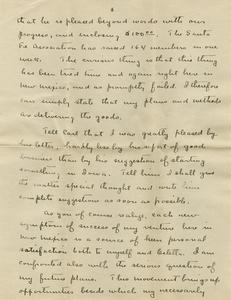 that he is pleased beyond words with our
progress, and enclosing $100.00. The Santa
Fe Association has raised 164 members in one
week. The curious thing is that this thing
has been tried time and again right here in
New Mexico, and as promptly failed. I therefore
can simply state that my plans and methods
are delivering the goods.
Tell Carl that I was greatly pleased by
his letter, hardly less by his spirit of good
than by his suggestion of starting
something in Iowa. Tell him I shall give
the matter special thought and write him
complete suggestions as soon as possible.
As you of course realize, each new
symptom of success of my venture here in
New Mexico is a source of keen personal
satisfaction both to myself and
confronted also with the serious question of
my future plans. This movement brings up
opportunities besides which my necessarily